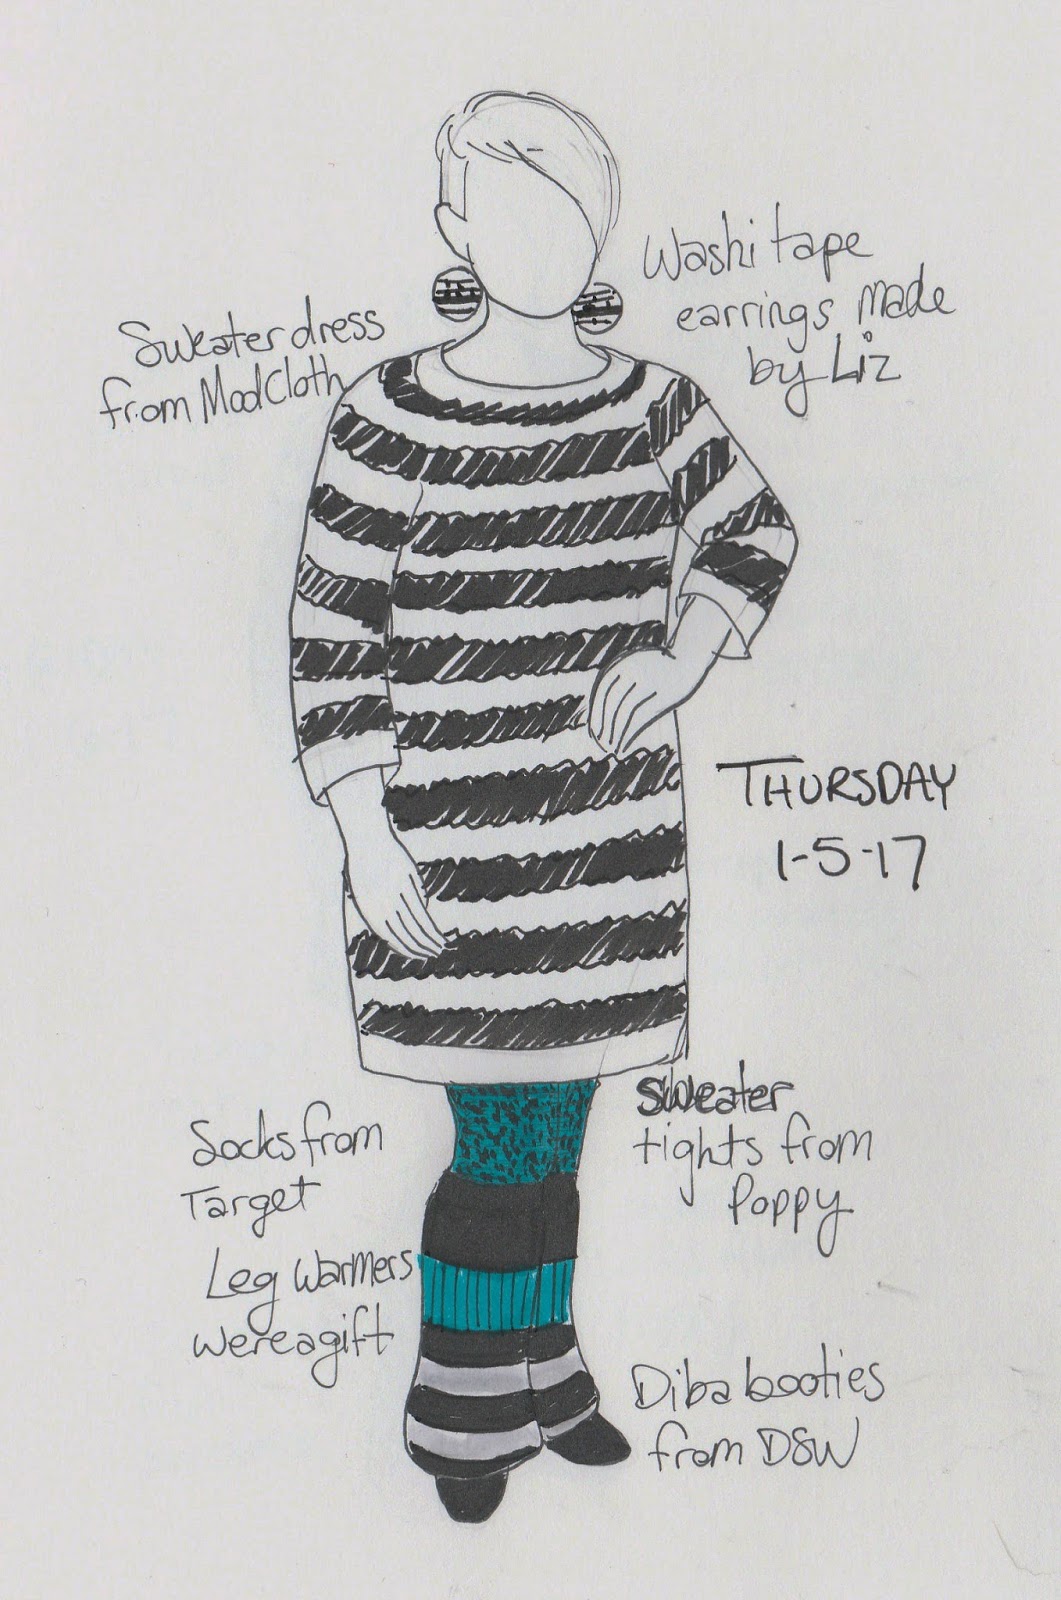 Washi tape
earrings made
by Liz
Sweater dress
from ModCloth
THURSDAY
1-5-17
Sweater
tights from
Poppy
Socks from
Target
Leg Warmers
were a gift
Diba booties
from DSW